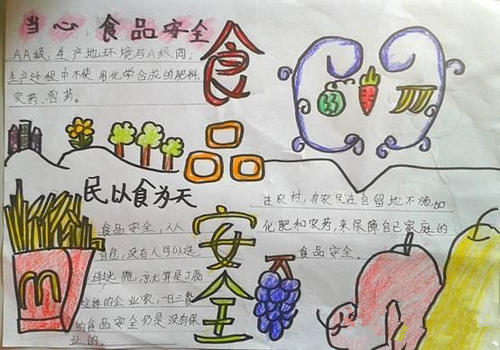 当心 食品安全
AA级：生产地环境与A级同；
生产过程中不使用化学合成的肥料、
农药、兽药。
食
品
安
全
民以食为天
食品安全，人人
自危，没有人可以选
择逃跑，凉
这样的企业家，一日三餐
的食品安全仍是没有保
证的。
在农村，有农民在自留地不添加
化肥和农药，来保障自己家庭的
食品安全。